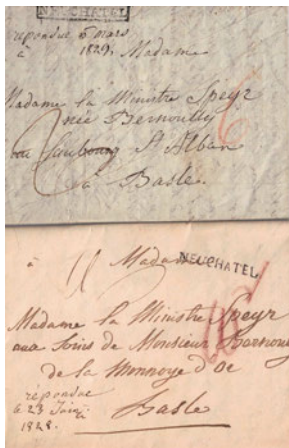 NEUCHATEL
répondue 6 mars
à 1829. Madame
Madame la Ministre Speyr
née Bernoully
au Faubourg St Alban
à Basle.
6
à Madame
NEUCHATEL
Madame la Ministre Speyr
aux soins de Monsieur
de la Monnoye d'Or
répondue
le 23 Juin
1828.
Basle